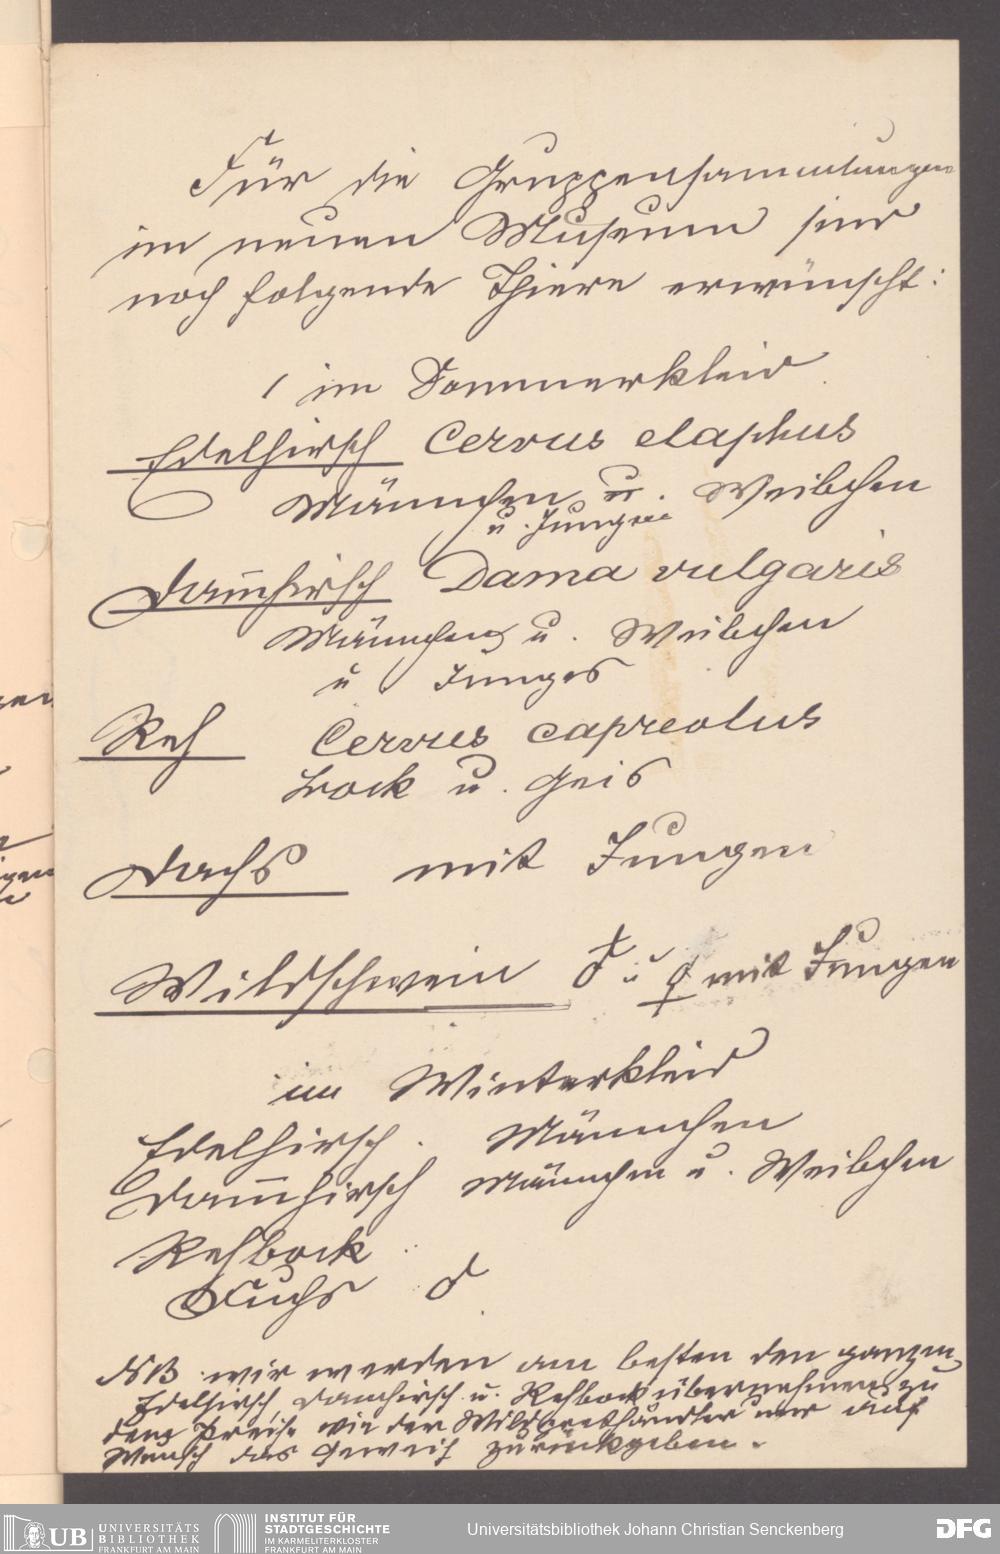 Für die Gruppensammlungen
im neuen Museum sind
noch folgende Thiere erwünscht:
1 im Sommerkleid
Edelhirsch Cervus elaphus
Männchen u. Weibchen
u. Junge
Damhirsch Dama vulgaris
Männchen u. Weibchen
u Junges
Reh Cervus capreolus
Bock u. Geis
Dachs mit Jungen
Wildschwein ♂ u ♀ mit Jungen
im Winterkleid
Edelhirsch. Männchen
Dam̄hirsch Männchen u. Weibchen
Rehbock
Fuchs ♂
NB wir werden am besten den ganzen
Edelhirsch Damhirsch u. Rehbock übernehmen zu
dem Preise wie der Wildprethändler und auf
Wunsch das Geweih zurückgeben.
UB UNIVERSITÄTS
BIBLIOTHEK
FRANKFURT AM MAIN
INSTITUT FÜR
STADTGESCHICHTE
IM KARMELITERKLOSTER
FRANKFURT AM MAIN
Universitätsbibliothek Johann Christian Senckenberg
DFG